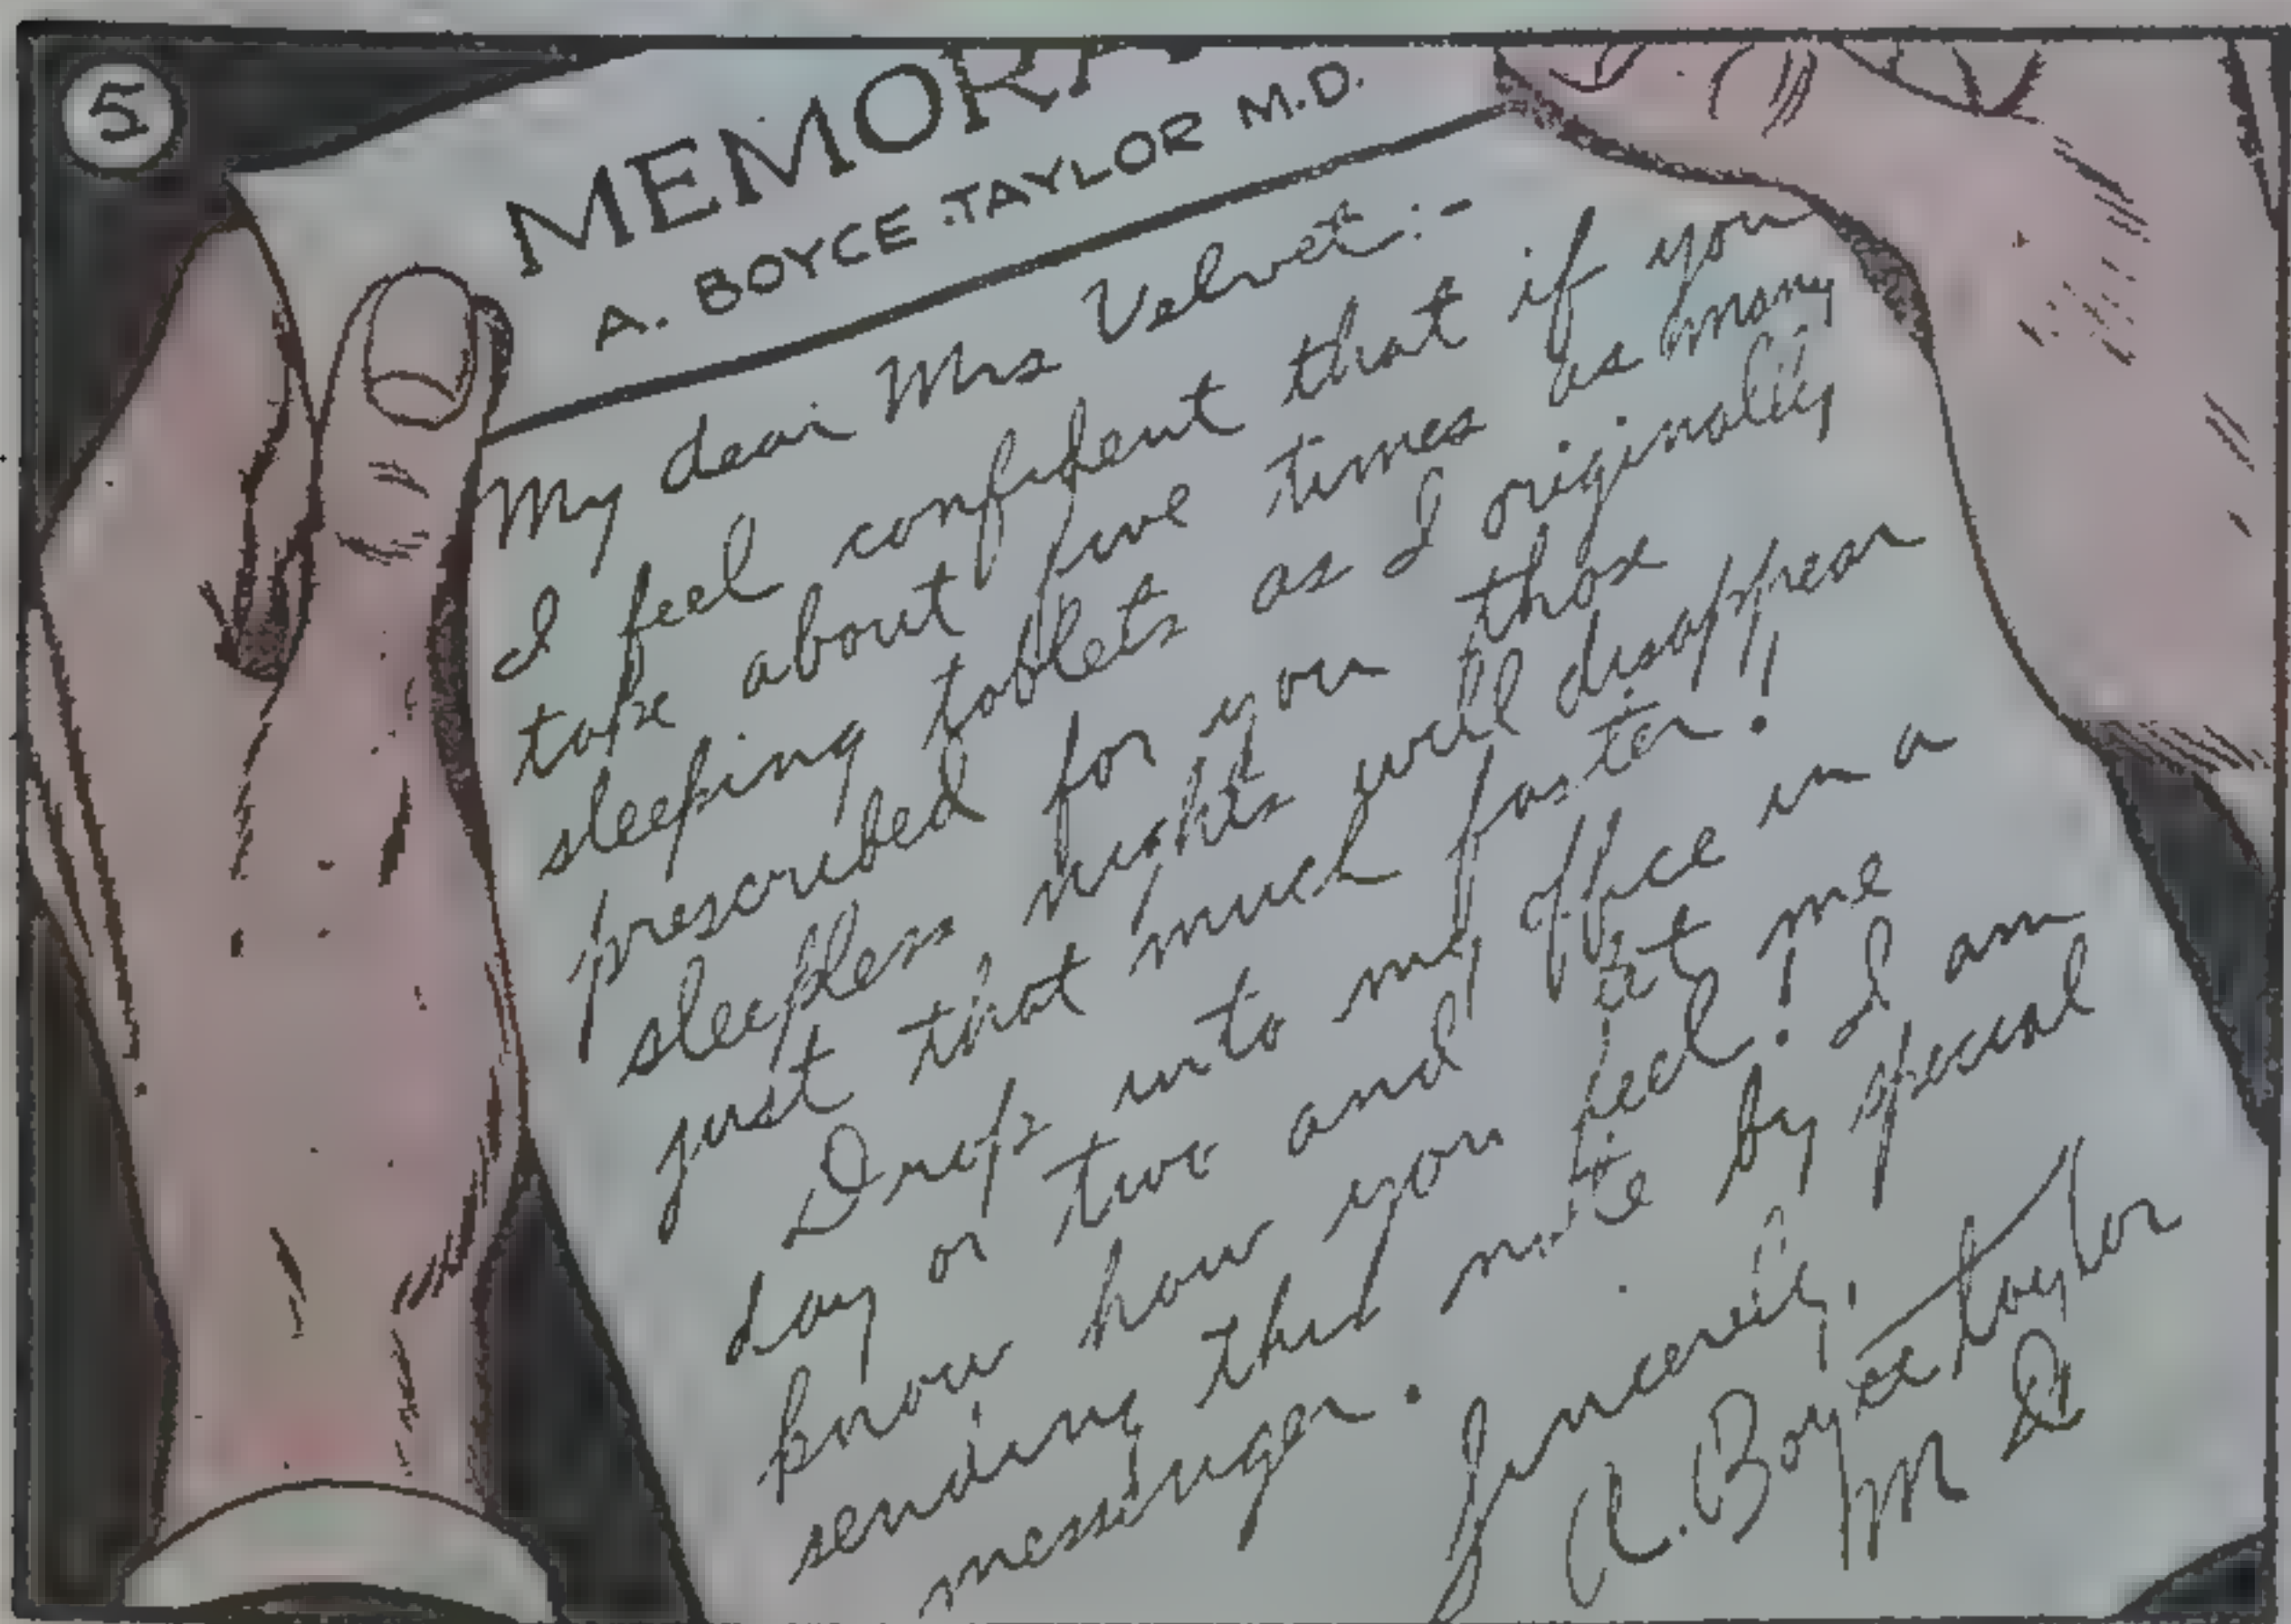 5
MEMORA
A. BOYCE TAYLOR M.D.
My dear Mrs Velvet:-
I feel confident that if you
take about five times as many
sleeping tablets as I originally
prescribed for you those
sleepless nights will disappear
just that much faster!
Drop into my office in a
day or two and let me
know how you feel! I am
sending this note by special
messenger.
Sincerely,
A. Boyce Taylor
M D